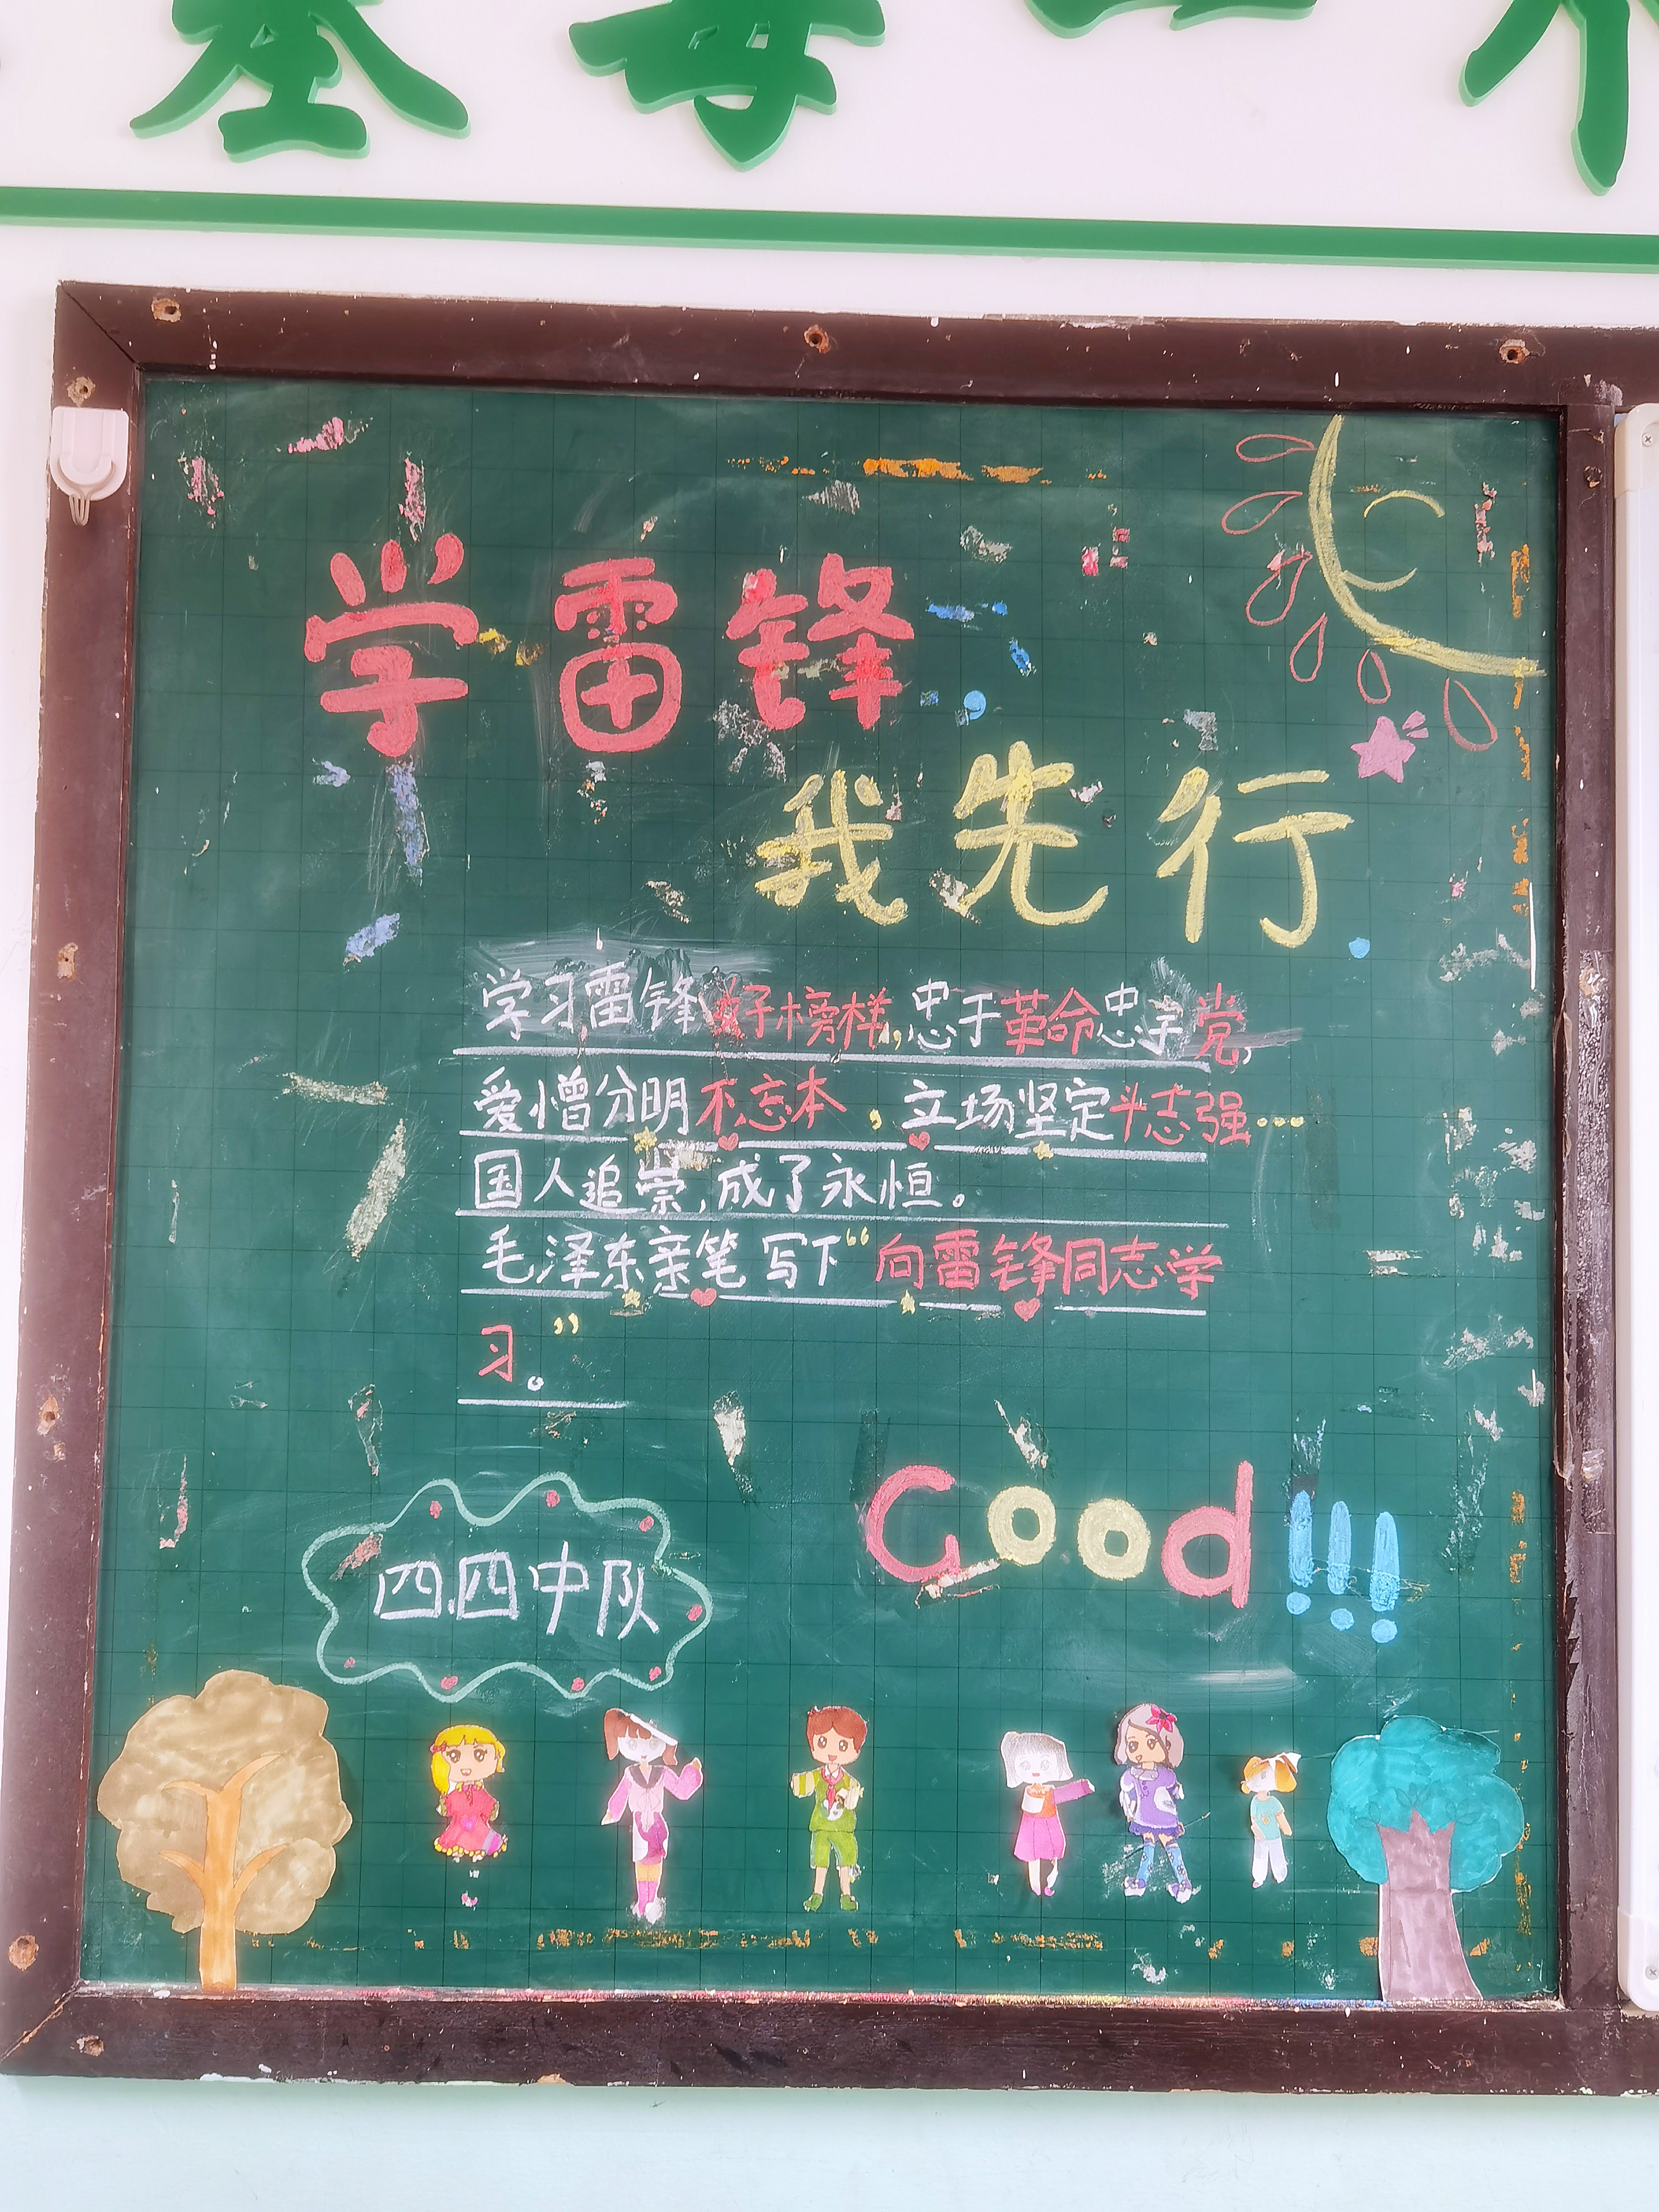 学雷锋
我先行
学习雷锋好榜样,忠于革命忠于党,
爱憎分明不忘本，立场坚定斗志强…
国人追崇,成了永恒。
毛泽东亲笔写下“向雷锋同志学
习”。
四.四中队
Good!!!